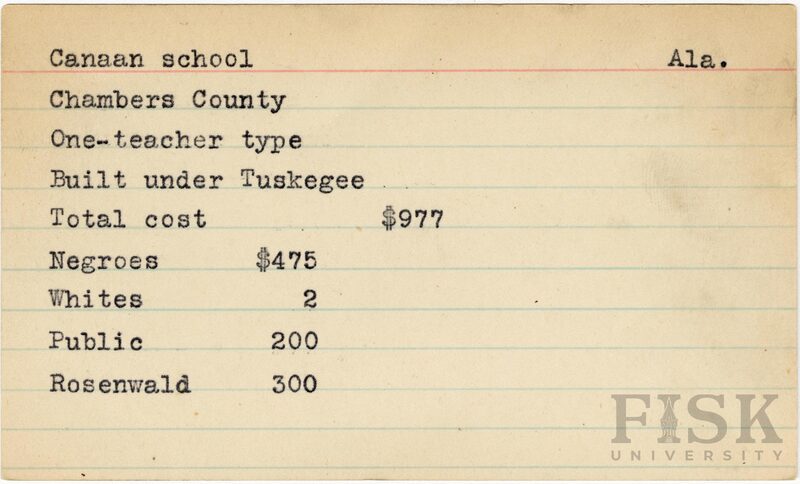 Canaan school Ala.
Chambers County
One-teacher type
Built under Tuskegee
Total cost $977
Negroes $475
Whites 2
Public 200
Rosenwald 300
FISK
UNIVERSITY